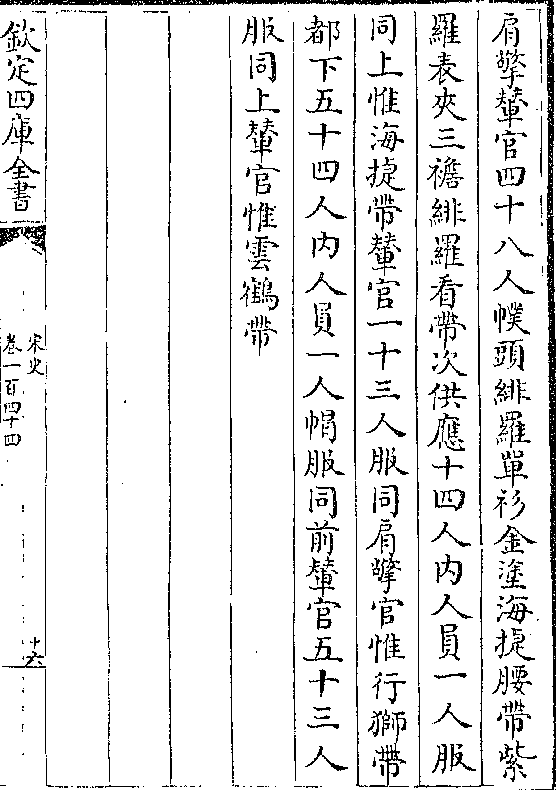 肩擎輦官四十八人幞頭緋羅單衫金塗海捷腰帶紫
羅表夾三襜緋羅看帶次供應十四人內人員一人服
同上惟海捷帶輦官一十三人服同肩擎官惟行獅帶
都下五十四人內人員一人帽服同前輦官五十三人
服同上輦官惟雲鶴帶
欽定四庫全書
宋史
卷一百四十四
十六